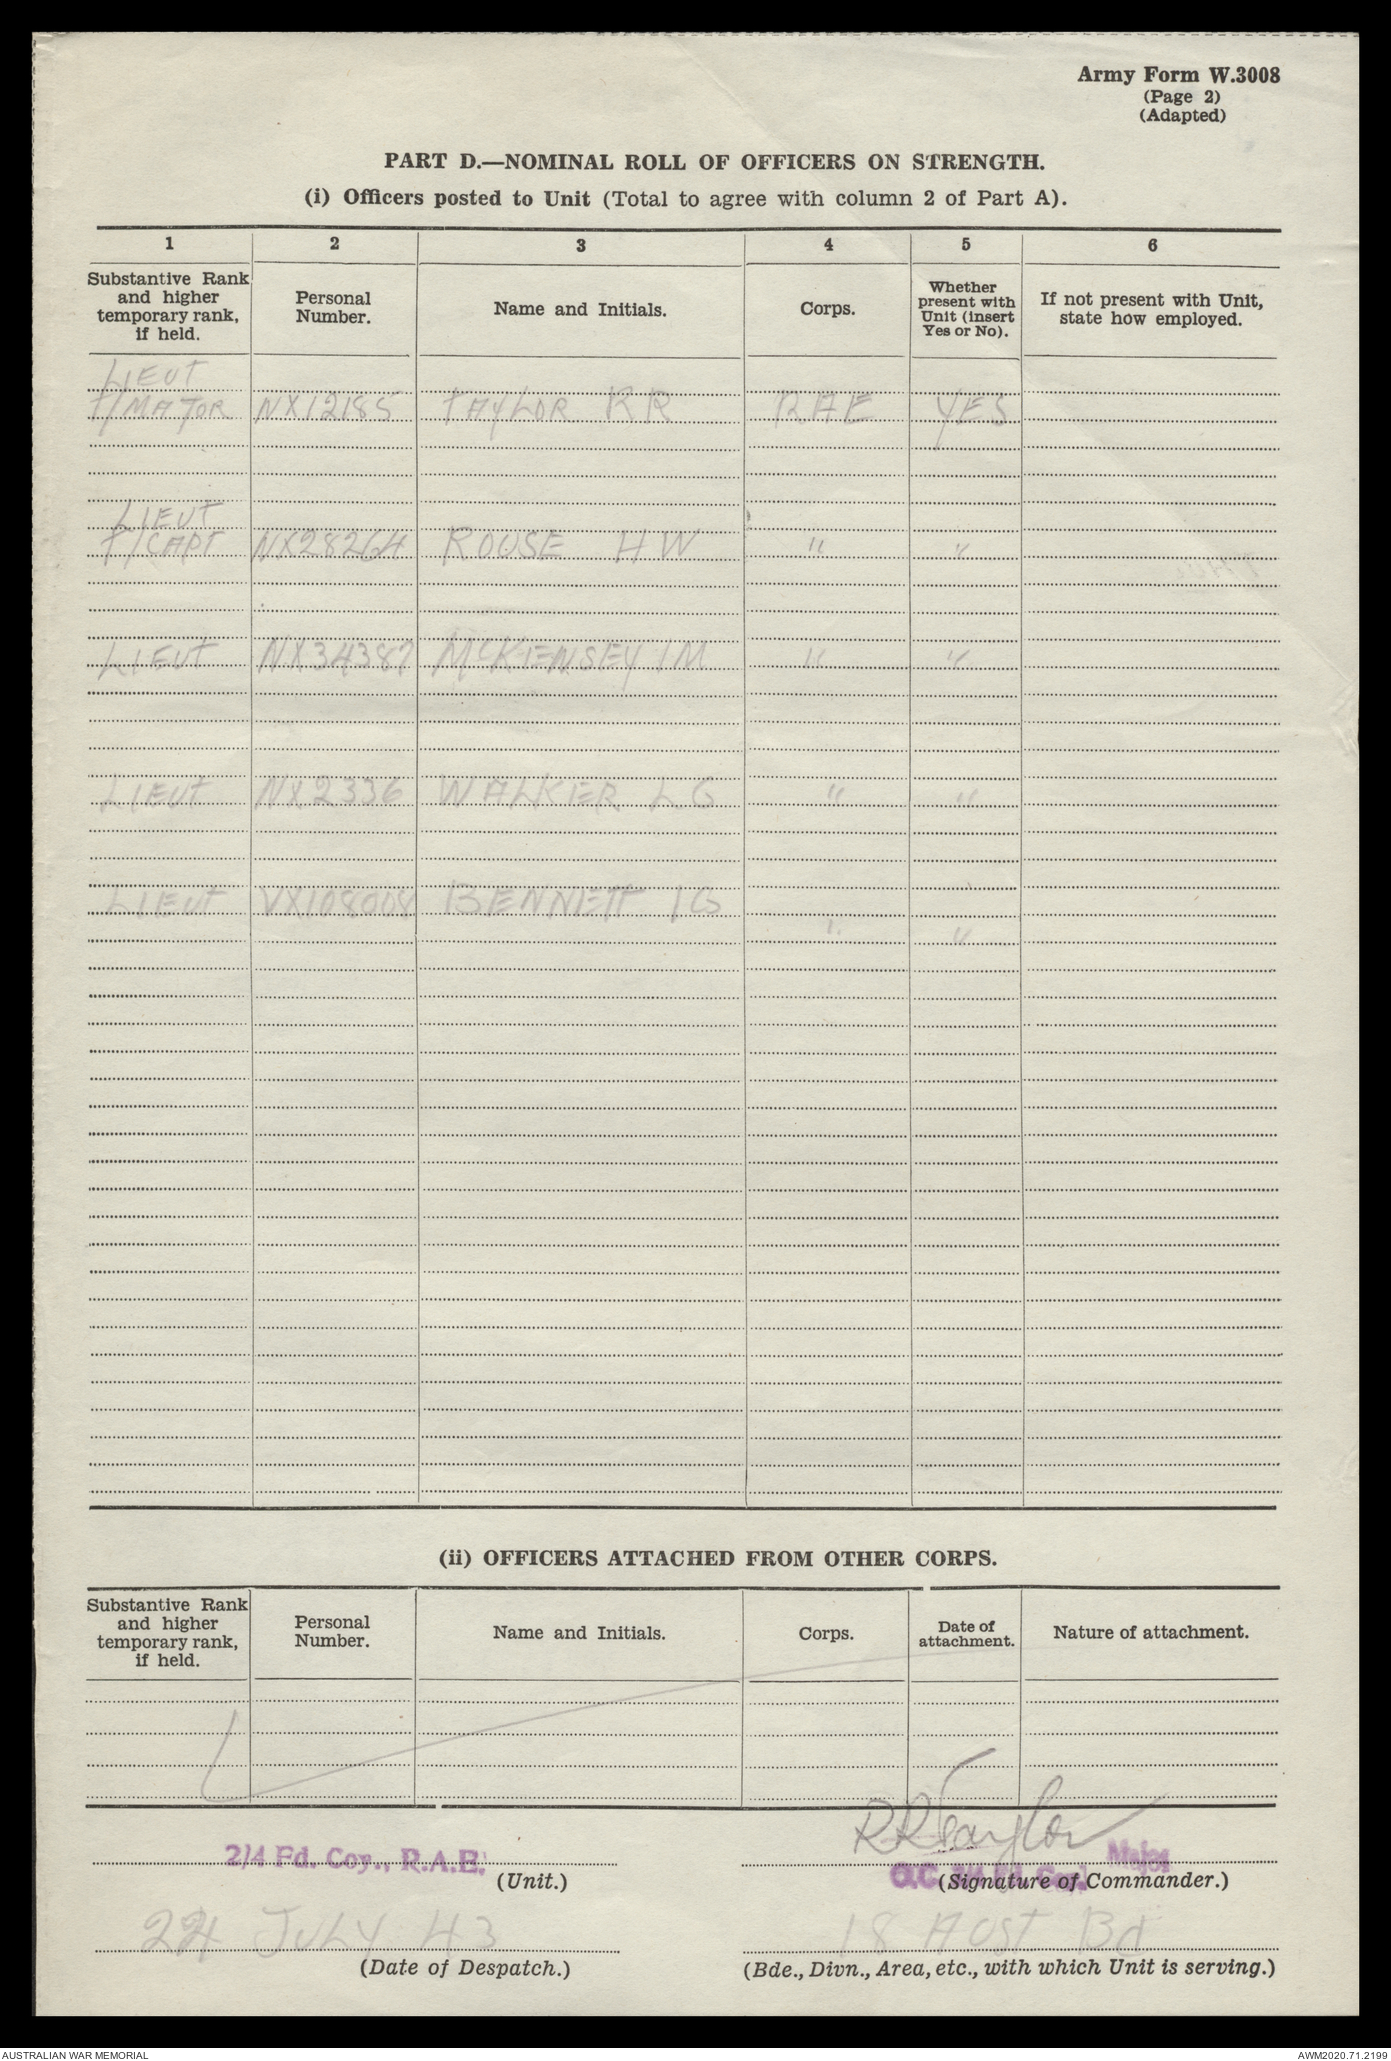 Army Form W.3008
(Page 2)
(Adapted)
PART D.—NOMINAL ROLL OF OFFICERS ON STRENGTH.
(i) Officers posted to Unit (Total to agree with column 2 of Part A).
1 2 3 4 5 6
Substantive Rank and higher temporary rank, if held.
Personal Number.
Name and Initials.
Corps.
Whether present with Unit (insert Yes or No).
If not present with Unit, state how employed.
LIEUT
T/MAJOR NX12185 TAYLOR RR RAE YES
LIEUT
T/CAPT NX28264 ROUSE HW " "
LIEUT NX34387 McKENSEY IM " "
LIEUT NX2336 WALKER LG " "
LIEUT VX108008 BENNETT IG " "
(ii) OFFICERS ATTACHED FROM OTHER CORPS.
Substantive Rank and higher temporary rank, if held.
Personal Number.
Name and Initials.
Corps.
Date of attachment.
Nature of attachment.
RRTaylor Major
2/4 Fd. Coy., R.A.E. O.C. 2/4 Fd. Coy.
(Unit.) (Signature of Commander.)
24 JULY 43 18 AUST Bd
(Date of Despatch.) (Bde., Divn., Area, etc., with which Unit is serving.)
AUSTRALIAN WAR MEMORIAL AWM2020.71.2199